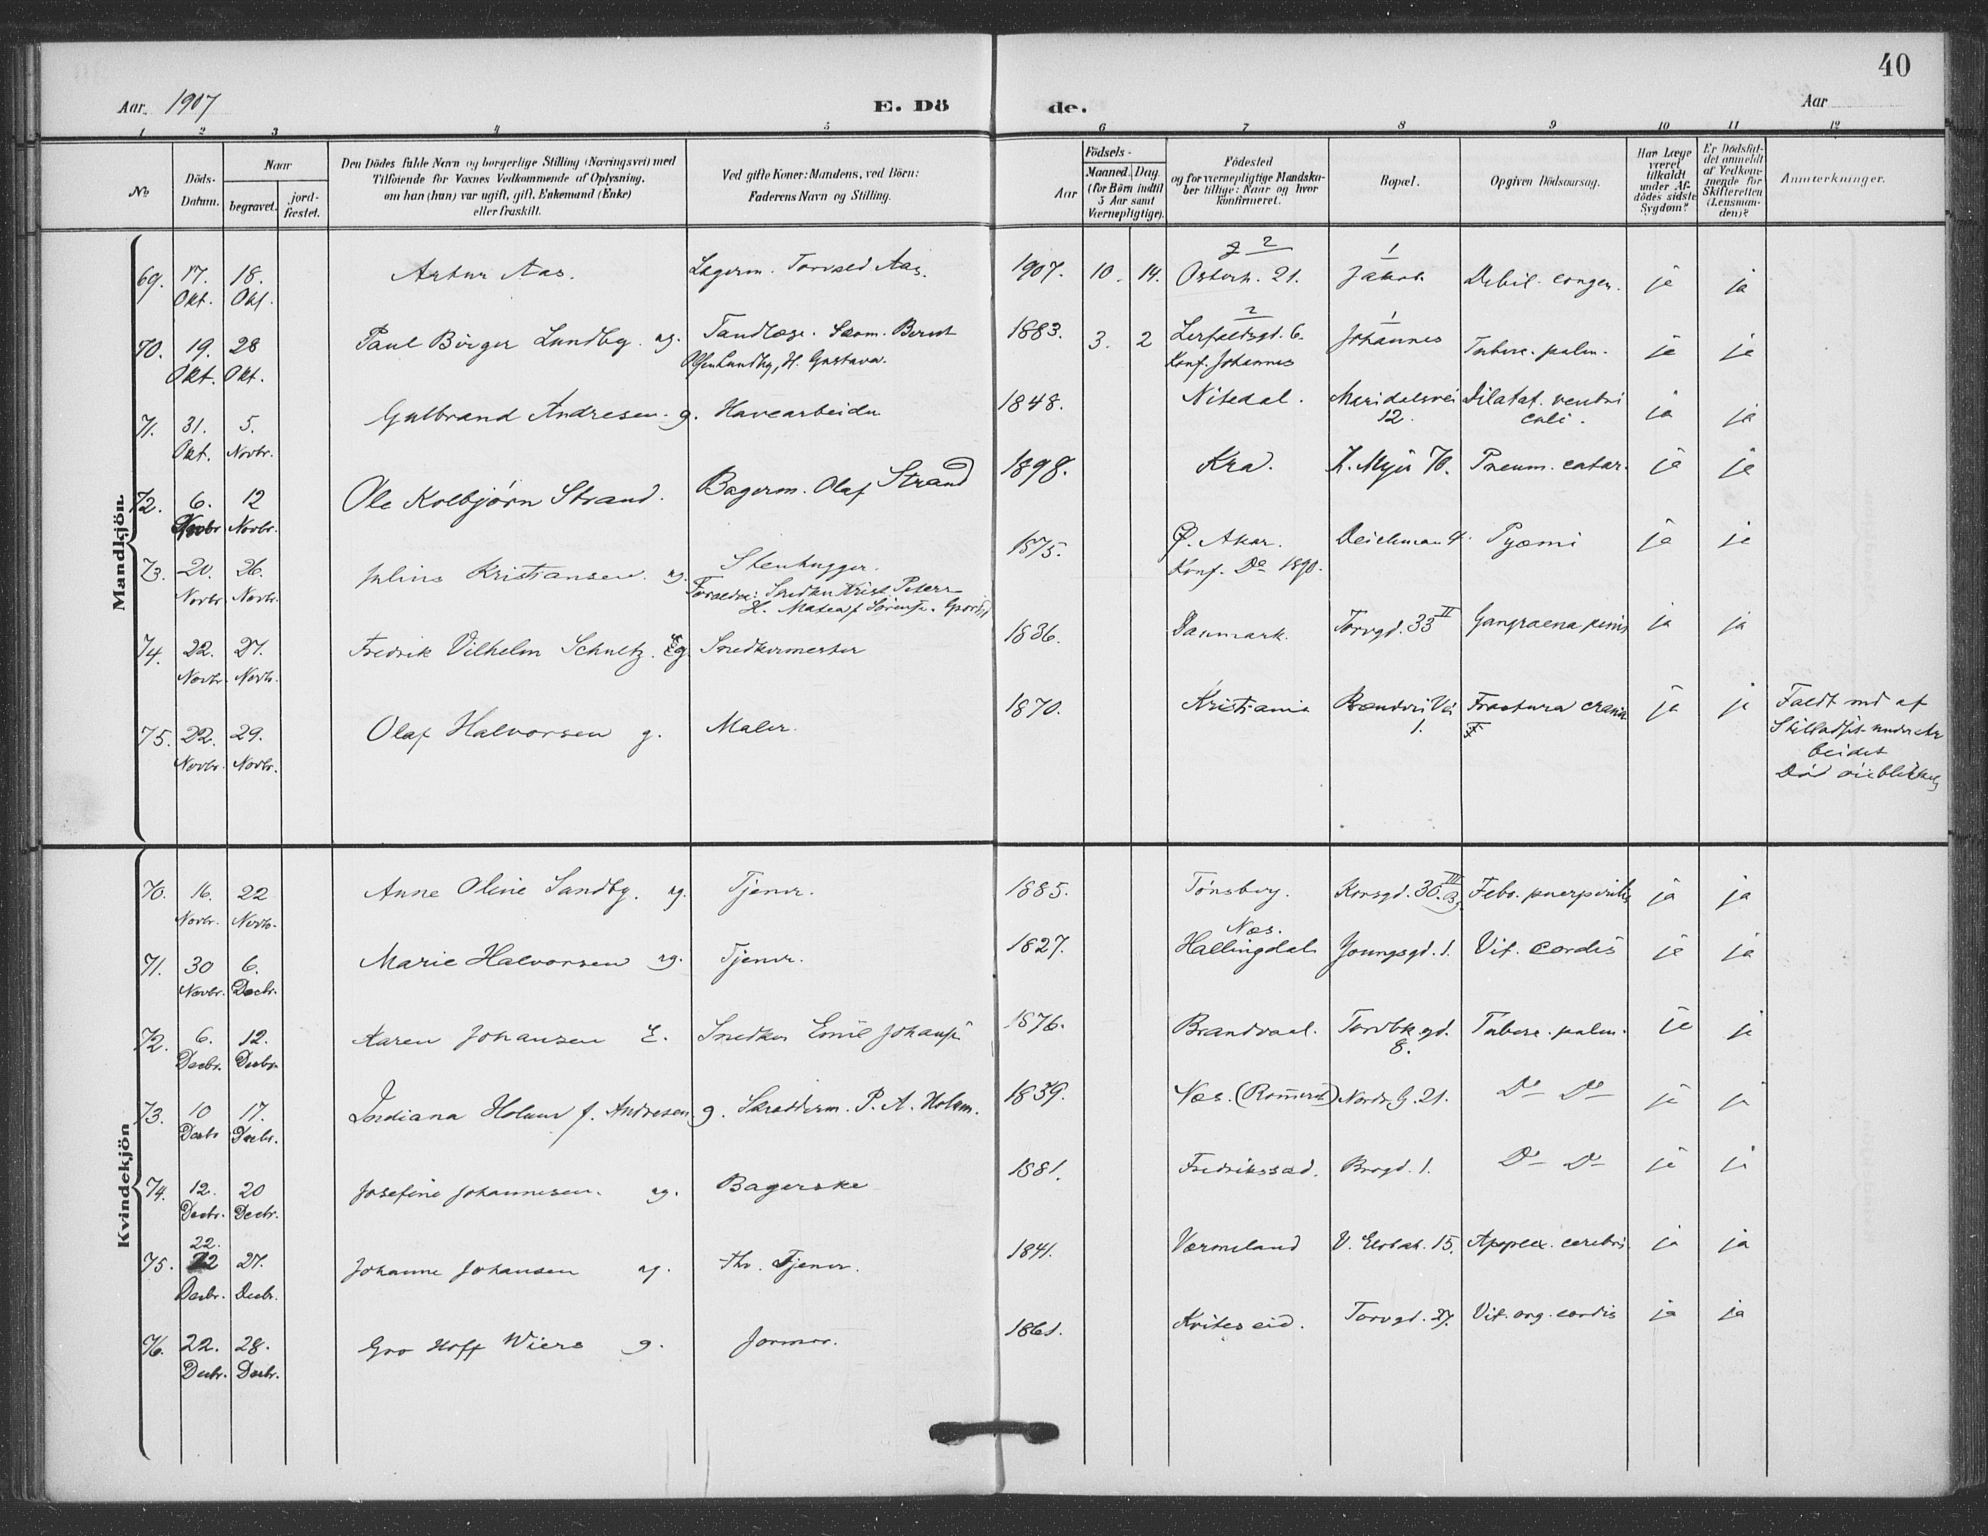 40
Aar 1907 E. Dö de. Aar
1 2 3 4 5 6 7 8 9 10 11 12
No
Döds-
Datum.
Naar
begravet.
jord-
fæstet.
Den Dödes fulde Navn og borgerlige Stilling (Næringsvei) med
Tilföiende for Voxnes Vedkommende af Oplysning,
om han (hun) var ugift, gift, Enkemand (Enke)
eller fraskilt.
Ved gifte Koner: Mandens, ved Börn:
Faderens Navn og Stilling.
Aar
Födsels-
Maaned. Dag.
(for Börn indtil
5 Aar samt
Værnepligtige).
Födested
og for værnepligtige Mandska-
ber tillige: Naar og hvor
konfirmeret.
Bopæl.
Opgiven Dödsaarsag.
Har Læge
været
tilkaldt
under Af-
dödes sidste
Sygdom?
Er Dödsfal-
det anmeldt
af Vedkom-
mende for
Skifteretten
(Lensman-
den)?
Anmærkninger.
Mandkjön
69. 17. Okt. 18. Okt. Artur Aas. Lagerm. Torvald Aas. 1907. 10. 14. Osterh. 21. Jakob 1 Debil. congen. ja ja
70. 19. Okt. 28 Okt. Paul Birger Lundby. ug. Tandlæge. Skom. Bernt
Olsen Lundby, H. Gustava 1883. 3. 2 Lerfaldsgd. 6. Konf. Johannes Johannes 1 Tuberc. pulm. ja ja
71. 31. Okt. 5. Novbr. Gulbrand Andresen. g. Havearbeider 1848. Nitedal. Maridalsvei 12. Dilatat. ventri
culi. ja ja
72. 6. Novbr. 12 Novbr. Ole Kolbjørn Strand. Bagerm. Olaf Strand 1898. Kra. Pneum. catar. ja ja
73. 20. Novbr. 26. Novbr. Julius Kristiansen. ug. Stenhugger. 1875. Ø. Aker.
Konf. Do 1890. Deichman g. Pyæmi ja ja
74. 22. Novbr. 27. Novbr. Fredrik Vilhelm Schultz. Eg. Snedkermester 1836. Danmark. Torvgd. 33 II Gangraena penis ja ja
75. 22. Novbr. 29. Novbr. Olaf Halvorsen g. Maler. 1870. Kristiania 1. Fractura cranii ja ja Faldt ned af
Stilladset under Ar
beidet
Død øieblikkelig
Kvindekjön
70. 16. Novbr. 22 Novbr. Anne Oline Sandby. ug. Tjener. 1885. Tønsberg. Korsgd. 30. III Febr. puerperalis ja ja
71. 30 Novbr. 6. Decbr. Marie Halvorsen ug. Tjener. 1827. Næs.
Hallingdal Youngsgd. 1. Vit. cordis ja ja
72. 6. Decbr. 12. Decbr. Karen Johansen E. Snedker Emil Johansen 1876. Brandvaal. Torvbk.gd. 8. Tuberc. pulm. ja ja
73. 10 Decbr. 17. Decbr. Indiana Holum f. Andresen g. Skrædderm. P. A. Holum. 1839. Næs. (Romerik) Nordr. G. 21. Do Do ja ja
74. 12. Decbr. 20 Decbr. Josefine Johannesen. ug. Bagerske 1881. Fredrikstad. Brogd. 1. Do Do ja ja
75. 22. Decbr. 27. Decbr. Johanne Johansen ug. fhv. Tjener. 1841. Værmeland V. Elvbak. 15. Apoplex. cerebri ja ja
76. 22. Decbr. 28. Decbr. Gro Hoff Wiers g. Jormor. 1861. Kviteseid. Torvgd. 27. Vit. org. cordis ja ja